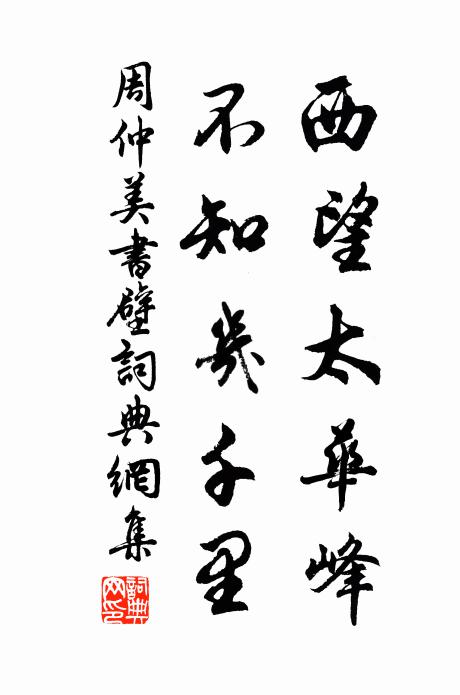 西望太華峰
不知幾千里
周仲美書壁詞典網集
詞典網印